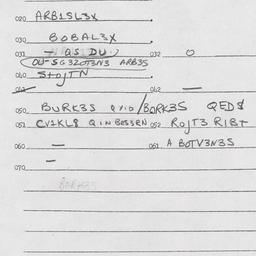 020 ARB1SL3X
030 BOBAL3X
031 — QS DU 032 O
OU-SG32OT3N3 ARB3S
040 STOJTN
041 042 —
050 BURK3S QVIO/BORK3S QED8
051 CV1KL8 QINBESSRN 052 ROJT3 RIBT
060 — 061 A BOTV3N3S
070 —